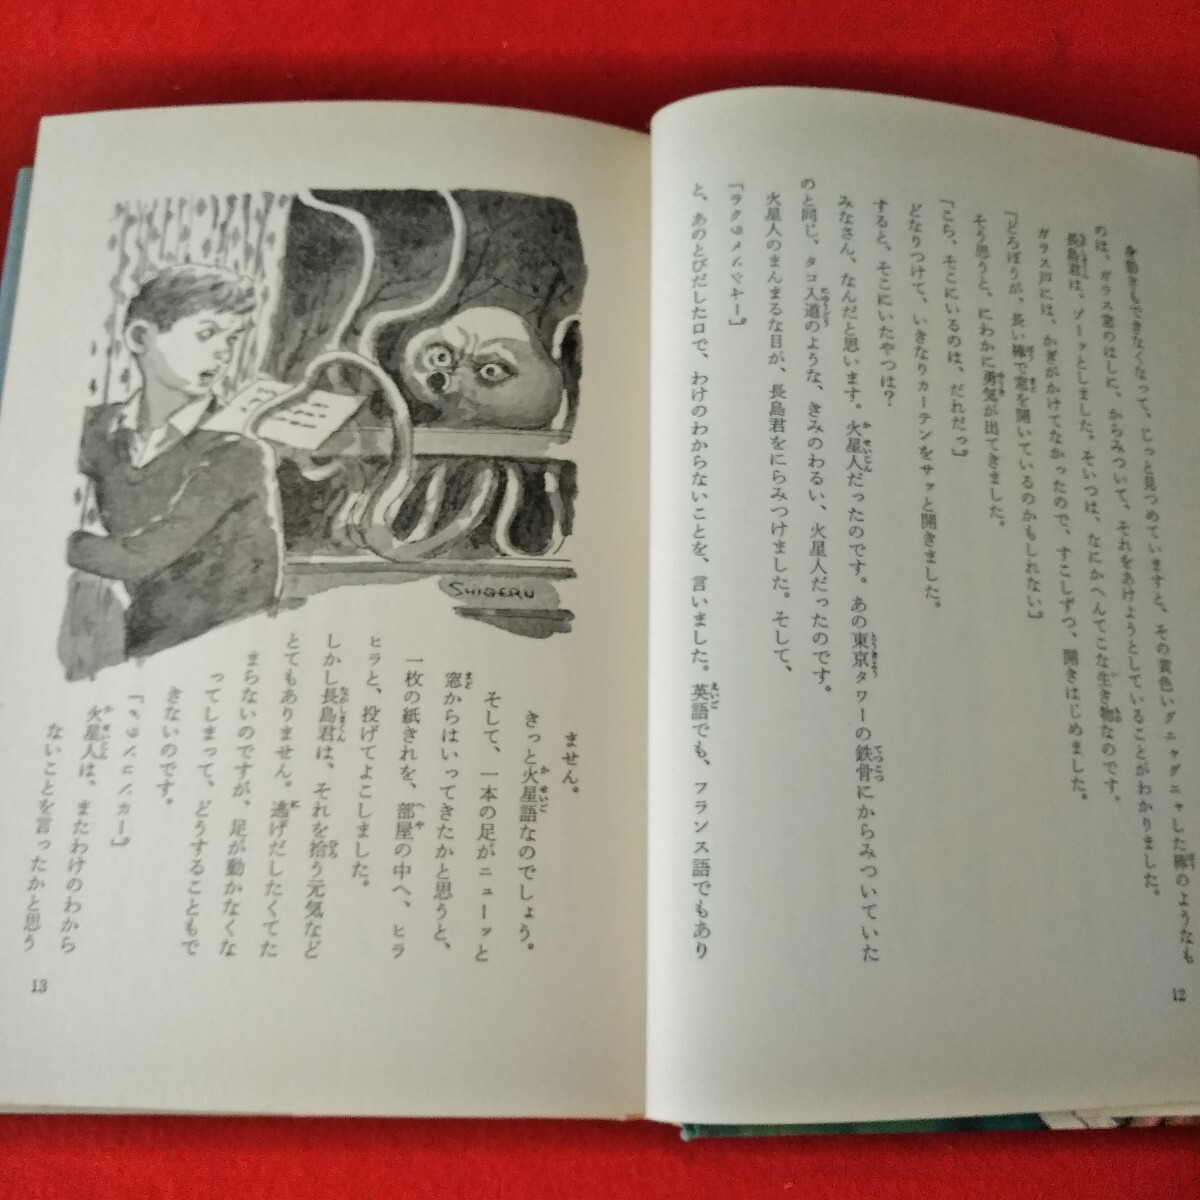 身動きもできなくなって、じっと見つめていますと、その黄色いグニャグニャした棒のようなも
のは、ガラス窓のはしに、からみついて、それをあけようとしていることがわかりました。
長島君は、ゾーッとしました。そいつは、なにかへんてこな生き物なのです。
ガラス戸には、かぎがかけてなかったので、すこしずつ、開きはじめました。
「どろぼうが、長い棒で窓を開いているのかもしれない」
そう思うと、にわかに勇気が出てきました。
「こら、そこにいるのは、だれだっ」
どなりつけて、いきなりカーテンをサッと開きました。
すると、そこにいたやつは？
みなさん、なんだと思います。火星人だったのです。あの東京タワーの鉄骨にからみついていた
のと同じ、タコ入道のような、きみのわるい、火星人だったのです。
火星人のまんまるな目が、長島君をにらみつけました。そして、
と、あのとびだした口で、わけのわからないことを、言いました。英語でも、フランス語でもあり
12
ません。
きっと火星語なのでしょう。
そして、一本の足がニューッと
窓からはいってきたかと思うと、
一枚の紙きれを、部屋の中へ、ヒラ
ヒラと、投げてよこしました。
しかし長島君は、それを拾う元気など
とてもありません。逃げだしたくてた
まらないのですが、足が動かなくな
ってしまって、どうすることもで
きないのです。
火星人は、またわけのわから
ないことを言ったかと思う
13
SHIGERU